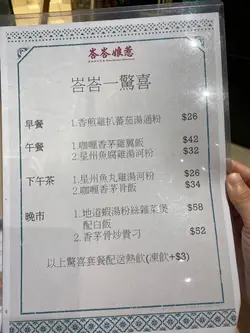 峇峇娘惹
峇峇一驚喜
早餐 1.香煎雞扒蕃茄湯通粉 $26
午餐 1.咖喱香茅雞翼飯 $42
2.星州魚腐雞湯河粉 $32
下午茶 1.星州魚丸雞湯河粉 $26
2.咖喱香茅骨飯 $34
晚市 1.地道蝦湯粉絲雜菜煲 $58
配白飯
2.香茅骨炒貴刁 $52
以上驚喜套餐配送熱飲(凍飲+$3)